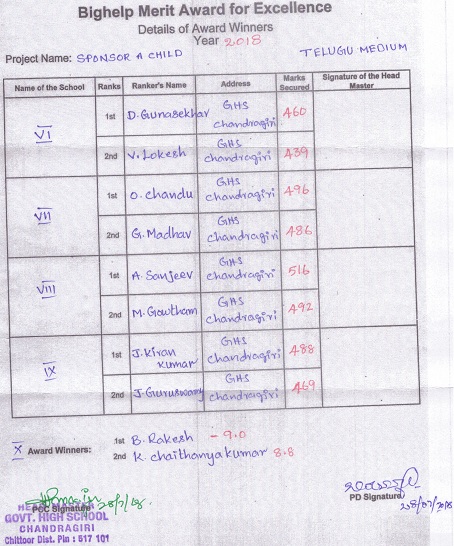 Bighelp Merit Award for Excellence
Details of Award Winners
Year 2018
Project Name: SPONSOR A CHILD TELUGU MEDIUM
Name of the School Ranks Ranker's Name Address Marks Secured Signature of the Head Master
VI 1st D. Gunasekhar GHS Chandragiri 460
2nd V. Lokesh GHS chandragiri 439
VII 1st O. chandu GHS Chandragiri 496
2nd G. Madhav GHS Chandragiri 486
VIII 1st A. Sanjeev GHS chandragiri 516
2nd M. Gowtham GHS Chandragiri 492
IX 1st J. Kiran kumar GHS Chandragiri 488
2nd J. Guruswamy GHS chandragiri 469
X Award Winners: 1st B. Rakesh - 9.0
2nd K. chaithanya kumar 8.8
28/7/18
PCC Signature
PD Signature
28/07/2018
GOVT. HIGH SCHOOL
CHANDRAGIRI
Chittoor Dist. Pin : 517 101